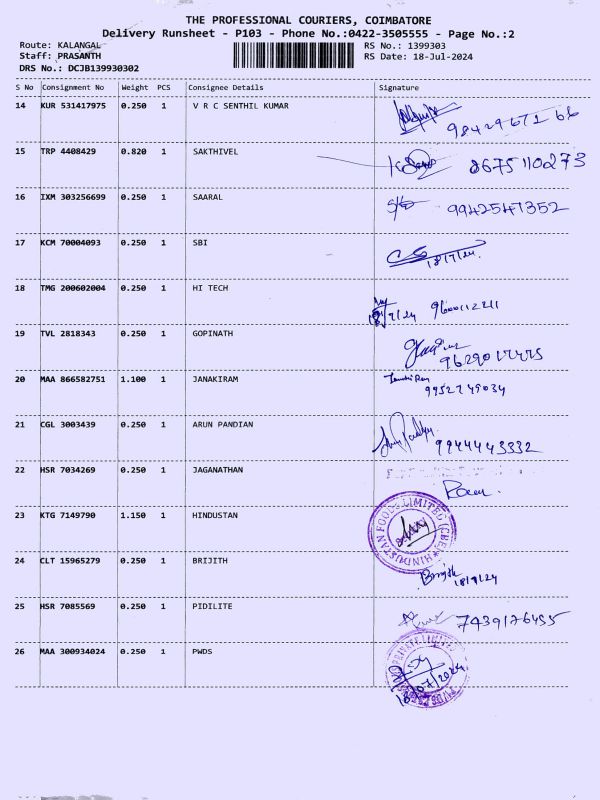 THE PROFESSIONAL COURIERS, COIMBATORE
Delivery Runsheet - P103 - Phone No.:0422-3505555 - Page No.:2
Route: KALANGAL
RS No.: 1399303
Staff: PRASANTH
RS Date: 18-Jul-2024
DRS No.: DCJB139930302
S No Consignment No Weight PCS Consignee Details Signature
14 KUR 531417975 0.250 1 V R C SENTHIL KUMAR
15 TRP 4408429 0.820 1 SAKTHIVEL 8675110273
16 IXM 303256699 0.250 1 SAARAL 9942547352
17 KCM 70004093 0.250 1 SBI 18/7/24.
18 TMG 200602004 0.250 1 HI TECH
19 TVL 2818343 0.250 1 GOPINATH
20 MAA 866582751 1.100 1 JANAKIRAM
21 CGL 3003439 0.250 1 ARUN PANDIAN 9944443332
22 HSR 7034269 0.250 1 JAGANATHAN
23 KTG 7149790 1.150 1 HINDUSTAN HINDUSTAN FOODS LIMITED (CBE)
24 CLT 15965279 0.250 1 BRIJITH Brijith
25 HSR 7085569 0.250 1 PIDILITE
26 MAA 300934024 0.250 1 PWDS PRIVATE LIMITED 18/07/2024